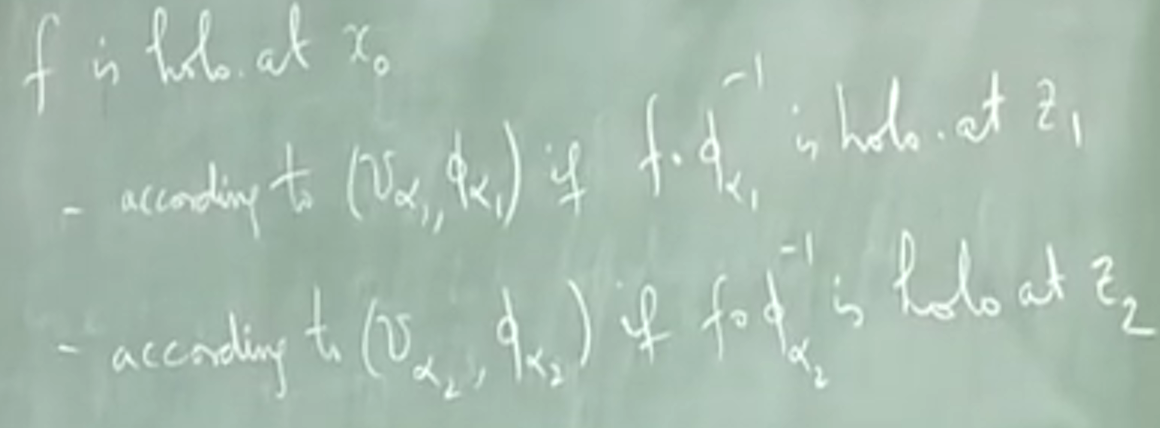 f is holo. at x₀
- according to (U_α₁, ϕ_α₁) if f∘ϕ_α₁⁻¹ is holo. at z₁
- according to (U_α₂, ϕ_α₂) if f∘ϕ_α₂⁻¹ is holo at z₂